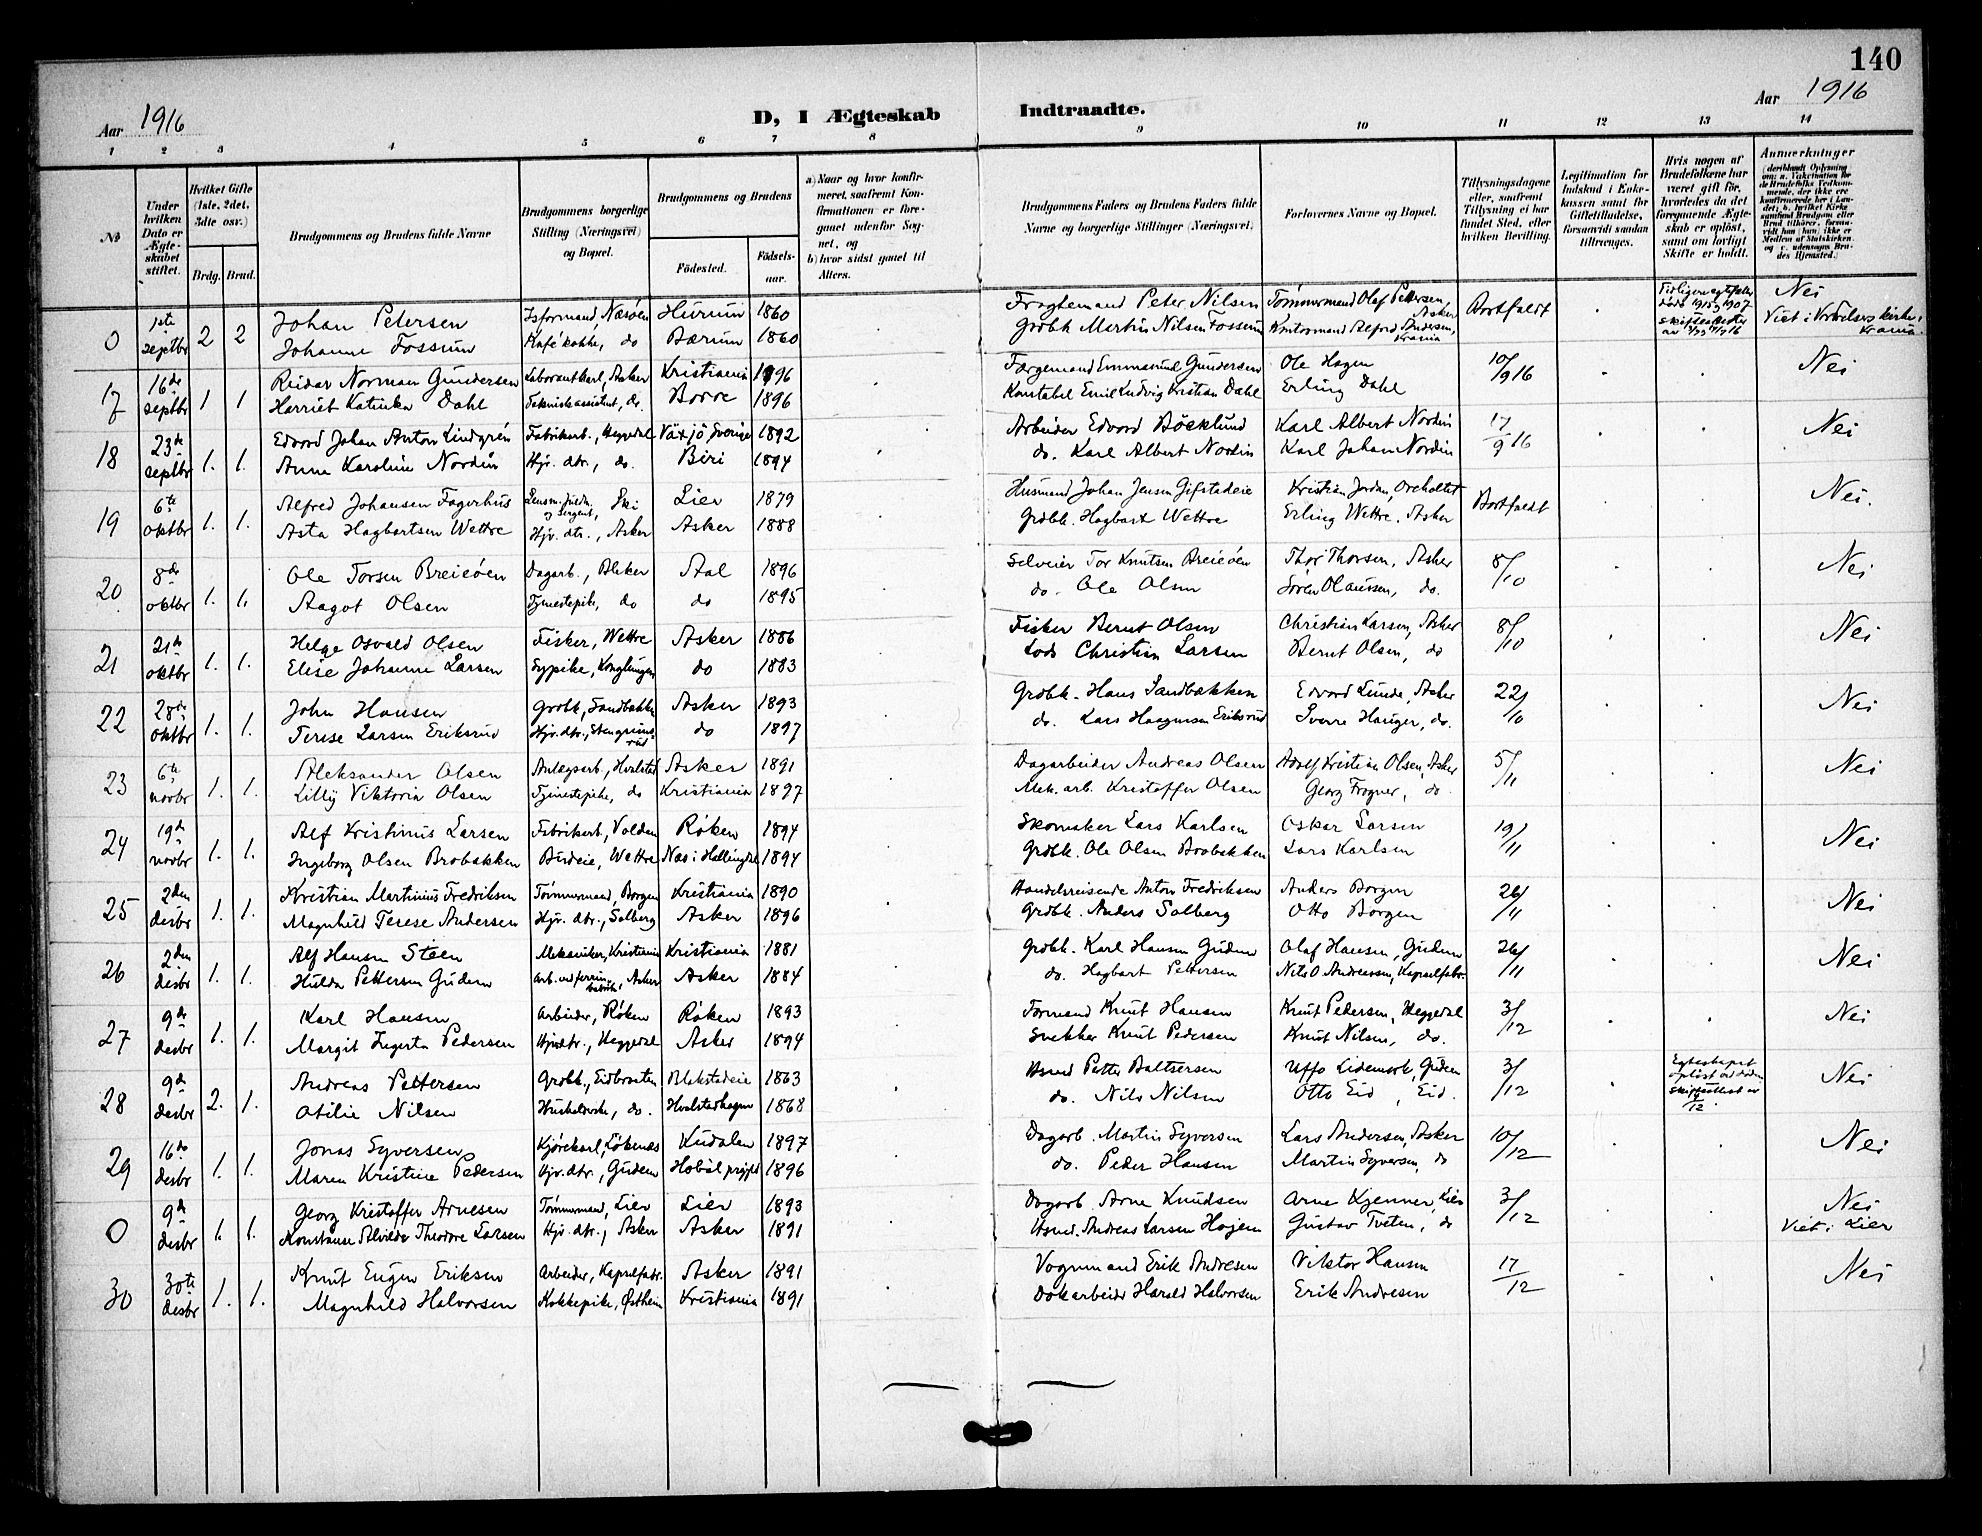 140
Aar 1916
D, I Ægteskab Indtraadte.
Aar 1916
1 2 3 4 5 6 7 8 9 10 11 12 13 14
№
Under hvilken Dato er Ægteskabet stiftet.
Hvilket Gifte (1ste, 2det, 3dte osv.)
Brdg. Brud.
Brudgommens og Brudens fulde Navne
Brudgommens borgerlige Stilling (Næringsvei) og Bopæl.
Brudgommens og Brudens
Fødested. Fødselsaar.
a) Naar og hvor konfirmeret, saafremt Konfirmationen er foregaaet udenfor Sognet, og
b) hvor sidst gaaet til Alters.
Brudgommens Faders og Brudens Faders fulde Navne og borgerlige Stillinger (Næringsvei.)
Forlovernes Navne og Bopæl.
Tillysningsdagene eller, saafremt Tillysning ei har fundet Sted, efter hvilken Bevilling.
Legitimation for Indskud i Enkekassen samt for Giftetilladelse, forsaavidt saadan tiltrænges.
Hvis nogen af Brudefolkene har været gift før, hvorledes da det foregaaende Ægteskab er opløst, samt om lovligt Skifte er holdt.
Anmerkninger
0 1ste septbr 2 2 Johan Petersen Isformand, Næsøen Hurum 1860 Fragtemand Peter Nilsen Tømmermand Olaf Pettersen, Asker Bortfaldt Nei
Johanne Fossum Kafékokke, do Bærum 1860 Grdbk Martin Nilsen Fossum Kontormand Alfred Andersen, Krania
17 16de septbr 1 1 Reidar Norman Gundersen Laborantkarl, Asker Kristiania 1896 Færgemand Emmanuel Gundersen Ole Hagen 10/9 16 Nei
Harriet Katinka Dahl do. Borre 1896 Konstabel Emil Ludvig Kristian Dahl Erling Dahl
18 23de septbr 1. 1. Edvard Johan Anton Lindgrén Fabrikarb., Heggedal Växjö Sverige 1892 Arbeider Edvard Böcklund Karl Albert Nordin 17/9 16 Nei
Anna Karoline Nordin Hjv. dtr., do. Biri 1894 do. Karl Albert Nordin Karl Johan Nordin
19 6te oktbr 1. 1. Alfred Johansen Fagerhus Lensm. fuldm. og sergent, Ski Lier 1879 Husmand Johan Jensen Gifstadeie Kristian Jordan, Bortfaldt Nei.
Asta Hagbartsen Wettre Hjv. dtr., Asker Asker 1888 Grdbk. Hagbart Wettre Erling Wettre, Asker
20 8de oktbr 1. 1. Ole Torsen Breieøen Dagarb., Bleker Aal 1896 Selveier Tor Knutsen Breieøen Thor Thorsen, Asker 8/10 Nei
Aagot Olsen Tjenestepike, do do 1895 do. Ole Olsen Søren Olaussen, do.
21 21de oktbr 1. 1. Helge Osvald Olsen Fisker, Wettre Asker 1886 Fisker Bernt Olsen Christian Larsen, Asker 8/10 Nei
Elise Johanne Larsen Sypike, Konglungen do 1883 Lods Christian Larsen Bernt Olsen, do
22 28de oktbr 1. 1. John Hansen Grdbk, Sandbakke Asker 1893 Grdbk. Hans Sandbakken Edvard Lunde, Asker 22/10 Nei
Terese Larsen Eriksrud Hjv. dtr., Stengrundsrud do 1897 do. Lars Haagensen Eriksrud Sverre Hauger, do.
23 6te novbr 1. 1. Aleksander Olsen Anlægsarb., Hvalstad Asker 1891 Dagarbeider Andreas Olsen Adolf Kristian Olsen, Asker 5/11 Nei
Lilly Viktoria Olsen Tjenestepike, do Kristiania 1897 Mek. arb. Kristoffer Olsen Georg Frogner, do
24 19de novbr 1. 1. Alf Kristinius Larsen Fabrikarb, Volden Røken 1894 Skomaker Lars Karlsen Oskar Larsen 19/11 Nei
Ingeborg Olsen Brobakken Budeie, Wettre Næs i Hallingdal 1894 Grdbk. Ole Olsen Brobakken Lars Karlsen
25 2den desbr 1. 1. Kristian Martinius Fredriksen Tømmermand, Borgen Kristiania 1890 Handelsreisende Anton Fredriksen Anders Borgen 26/11 Nei
Magnhild Terese Andersen Hjv. dtr., Solberg Asker 1896 Grdbk. Anders Solberg Otto Borgen
26 2den desbr 1. 1. Alf Hansen Steen Mekaniker, Kristiania Kristiania 1881 Grdbk. Karl Hansen Gudem Olaf Hansen, Gudem 26/11 Nei
Hulda Pettersen Gudem Asker Asker 1884 do. Hagbart Pettersen Nils O Andreassen, Kapselfabr.
27 9de desbr 1. 1. Karl Hansen Arbeider, Røken Røken 1893 Formand Knut Hansen Knut Pedersen, Heggedal 3/12 Nei
Margit Ingerta Pedersen Hjv. dtr., Heggedal Asker 1894 Snekker Knut Pedersen Knut Nilsen, do.
28 9de desbr 2. 1. Andreas Pettersen Grdbk., Eidbraaten Blekstadeie 1863 Husmd Petter Baltsersen Uffo Lidemark, Gudem 3/12 Nei
Otilie Nilsen do. Hvalstadhagen 1868 do. Nils Nilsen Otto Eid, Eid.
29 16de desbr 1. 1. Jonas Syversen Kjørekarl, Løkenes Kudalen 1897 Dagarb. Martin Syversen Lars Andersen, Asker 10/12 Nei
Maren Kristine Pedersen Hjv. dtr., Gudem Hobøl prgjld 1896 do. Peder Hansen Martin Syversen, do
0 9de desbr 1. 1. Georg Kristoffer Arnesen Tømmermand, Lier Lier 1893 Dagarb. Arne Knudsen Arne Kjenner, Lier 3/12 Nei
Konstanse Alvilde Theodore Larsen Hjv. dtr., Asker Asker 1891 Husmd. Andreas Larsen Hagen Gustav Tveten, do Viet i Lier
30 30te desbr 1. 1. Knut Eugen Eriksen Arbeider, Kapselfabr. Asker 1891 Vognmand Erik Andresen Viktor Hansen 17/12 Nei
Magnhild Halvorsen Kokkepike, Østheim Kristiania 1891 Dokarbeider Harald Halvorsen Erik Andresen